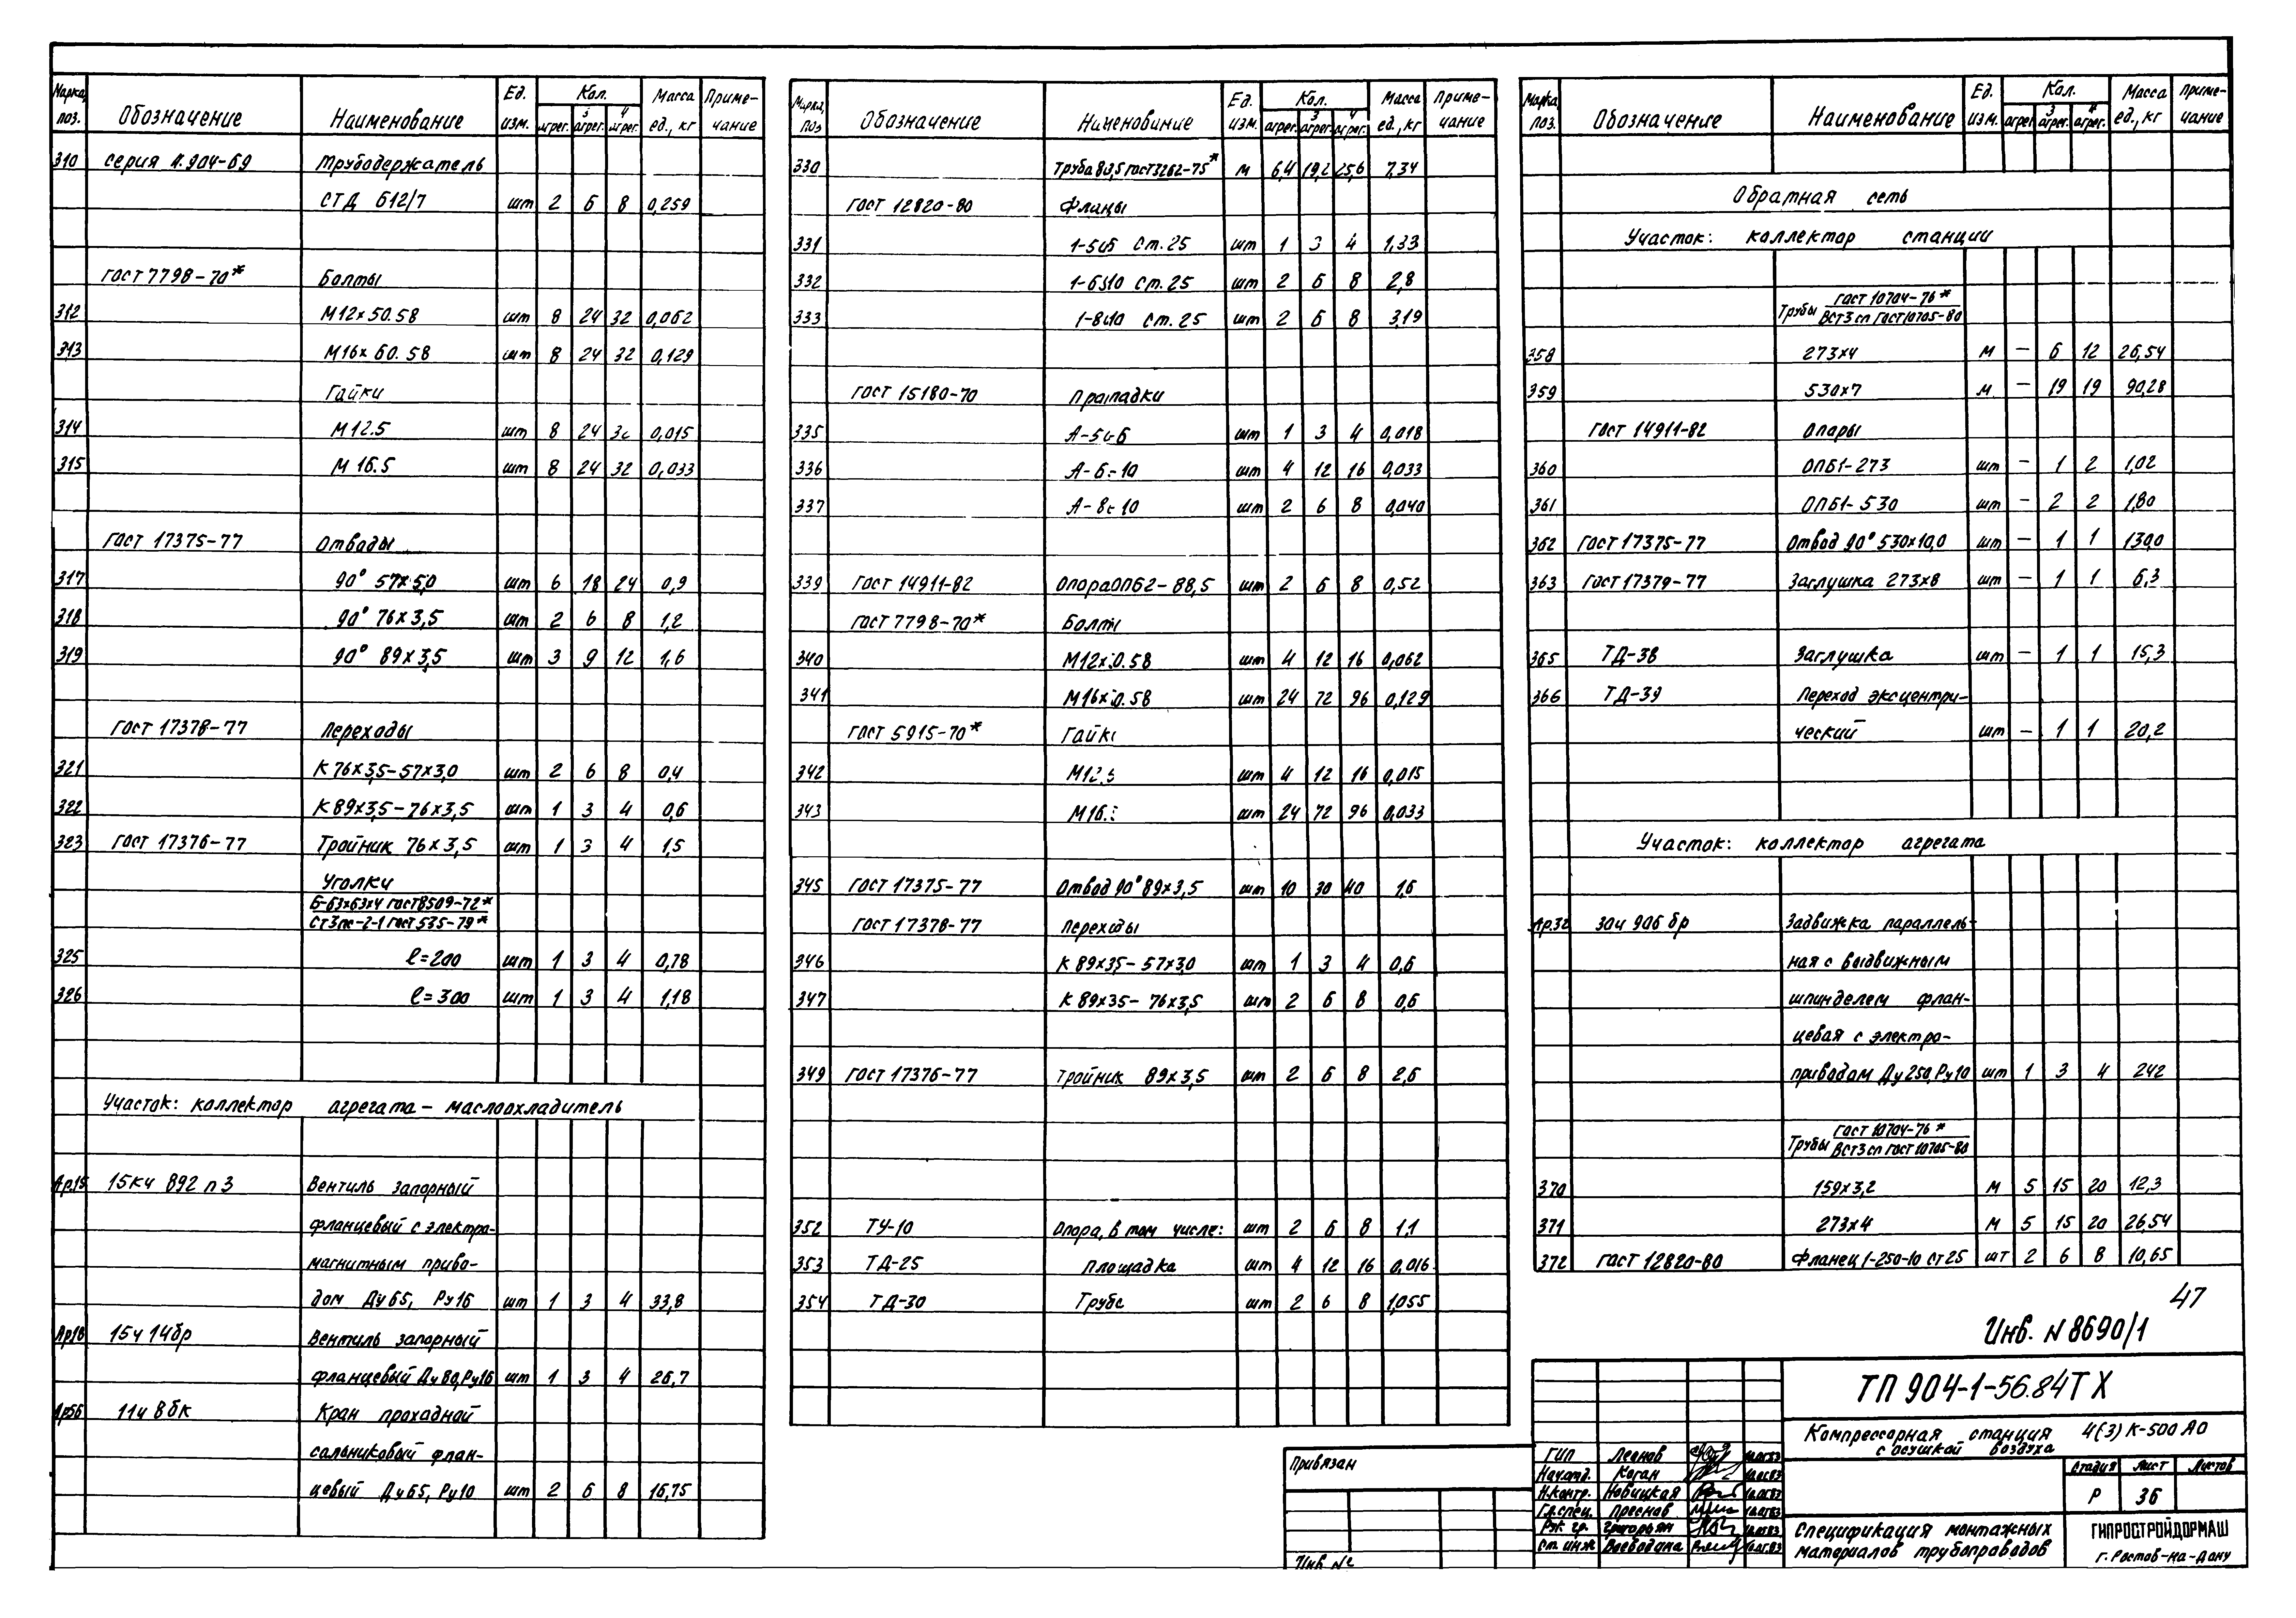 Марка, поз. Обозначение Наименование Ед. изм. Кол. агрег. 3 агрег. 4 агрег. Масса ед., кг Примечание
310 серия 4.904-69 Трубодержатель
СТД 612/7 шт 2 6 8 0,259
ГОСТ 7798-70* Болты
312 М12х50.58 шт 8 24 32 0,062
313 М16х60.58 шт 8 24 32 0,129
Гайки
314 М12.5 шт 8 24 0,015
315 М16.5 шт 8 24 32 0,033
ГОСТ 17375-77 Отводы
317 90° 57х5,0 шт 6 18 24 0,9
318 90° 76х3,5 шт 2 6 8 1,2
319 90° 89х3,5 шт 3 9 12 1,6
ГОСТ 17378-77 Переходы
321 К 76х3,5-57х3,0 шт 2 6 8 0,4
322 К 89х3,5-76х3,5 шт 1 3 4 0,6
323 ГОСТ 17376-77 Тройник 76х3,5 шт 1 3 4 1,5
Уголки
Б-63х63х4 ГОСТ 8509-72*
Ст3пс-2-1 ГОСТ 535-79*
325 ℓ=200 шт 1 3 4 0,78
326 ℓ=300 шт 1 3 4 1,18
Участок: коллектор агрегата - маслоохладитель
Ар.15 15кч 892 п3 Вентиль запорный
фланцевый с электро-
магнитным приво-
дом Ду65, Ру16 шт 1 3 4 33,8
Ар18 15ч 14бр Вентиль запорный
фланцевый Ду80, Ру16 шт 1 3 4 26,7
Ар56 11ч 8бк Кран проходной
сальниковый флан-
цевый Ду65, Ру10 шт 2 6 8 16,75
Марка, поз Обозначение Наименование Ед. изм. Кол. агрег. 3 агрег. 4 агрег. Масса ед., кг Примечание
330 Труба ГОСТ 3262-75* м 6,4 19,2 25,6 7,34
ГОСТ 12820-80 Фланцы
331 Ст.25 шт 1 3 4 1,33
332 Ст.25 шт 2 6 8 2,8
333 Ст.25 шт 2 6 8 3,19
ГОСТ 15180-70 Прокладки
335 шт 1 3 4 0,018
336 шт 4 12 16 0,033
337 шт 2 6 8 0,040
339 ГОСТ 14911-82 Опора ОПБ2-88,5 шт 2 6 8 0,52
ГОСТ 7798-70* Болты
340 шт 4 12 16 0,062
341 шт 24 72 96 0,129
ГОСТ 5915-70* Гайки
342 М12.5 шт 4 12 16 0,015
343 шт 24 72 96 0,033
345 ГОСТ 17375-77 Отвод 90° 89х3,5 шт 10 30 40 1,6
ГОСТ 17378-77 Переходы
346 К 89х3,5-57х3,0 шт 1 3 4 0,6
347 К 89х3,5-76х3,5 шт 2 6 8 0,6
349 ГОСТ 17376-77 Тройник 89х3,5 шт 2 6 8 2,6
352 ТУ-10 Опора, в том числе: шт 2 6 8 1,1
353 ТД-25 Площадка шт 4 12 16 0,016
354 ТД-30 Труба шт 2 6 8 1,055
Марка, поз. Обозначение Наименование Ед. изм. Кол. агрег. 3 агрег. 4 агрег. Масса ед., кг Примечание
Обратная сеть
Участок: коллектор станции
Трубы ГОСТ 10704-76*
ВСт3сп ГОСТ 10705-80
358 273х4 м — 6 12 26,54
359 530х7 м — 19 19 90,28
ГОСТ 14911-82 Опоры
360 ОПБ1-273 шт — 1 2 1,02
361 ОПБ1-530 шт — 2 2 1,80
362 ГОСТ 17375-77 Отвод 90° 530х10,0 шт — 1 1 139,0
363 ГОСТ 17379-77 Заглушка 273х8 шт — 1 1 6,3
365 ТД-38 Заглушка шт — 1 1 15,3
366 ТД-39 Переход эксцентри-
ческий шт — 1 1 20,2
Участок: коллектор агрегата
Ар.32 30ч 906 бр Задвижка параллель-
ная с выдвижным
шпинделем флан-
цевая с электро-
приводом Ду250, Ру10 шт 1 3 4 242
Трубы ГОСТ 10704-76*
ВСт3сп ГОСТ 10705-80
370 159х3,2 м 5 15 20 12,3
371 273х4 м 5 15 20 26,54
372 ГОСТ 12820-80 Фланец 1-250-10 Ст25 шт 2 6 8 10,65
47
Инв. N 8690/1
ТП 904-1-56.84 ТХ
Компрессорная станция 4(3) К-500 АО
с осушкой воздуха
Привязан
Инв №
ГИП Леонов
Нач.отд. Коган
Н.контр. Новицкая
Гл.спец. Преснов
Рук. гр. Григорьян
Ст. инж Воеводина
Стадия Лист Листов
Р 36
Спецификация монтажных
материалов трубопроводов
ГИПРОСТРОЙДОРМАШ
г. Ростов-на-Дону